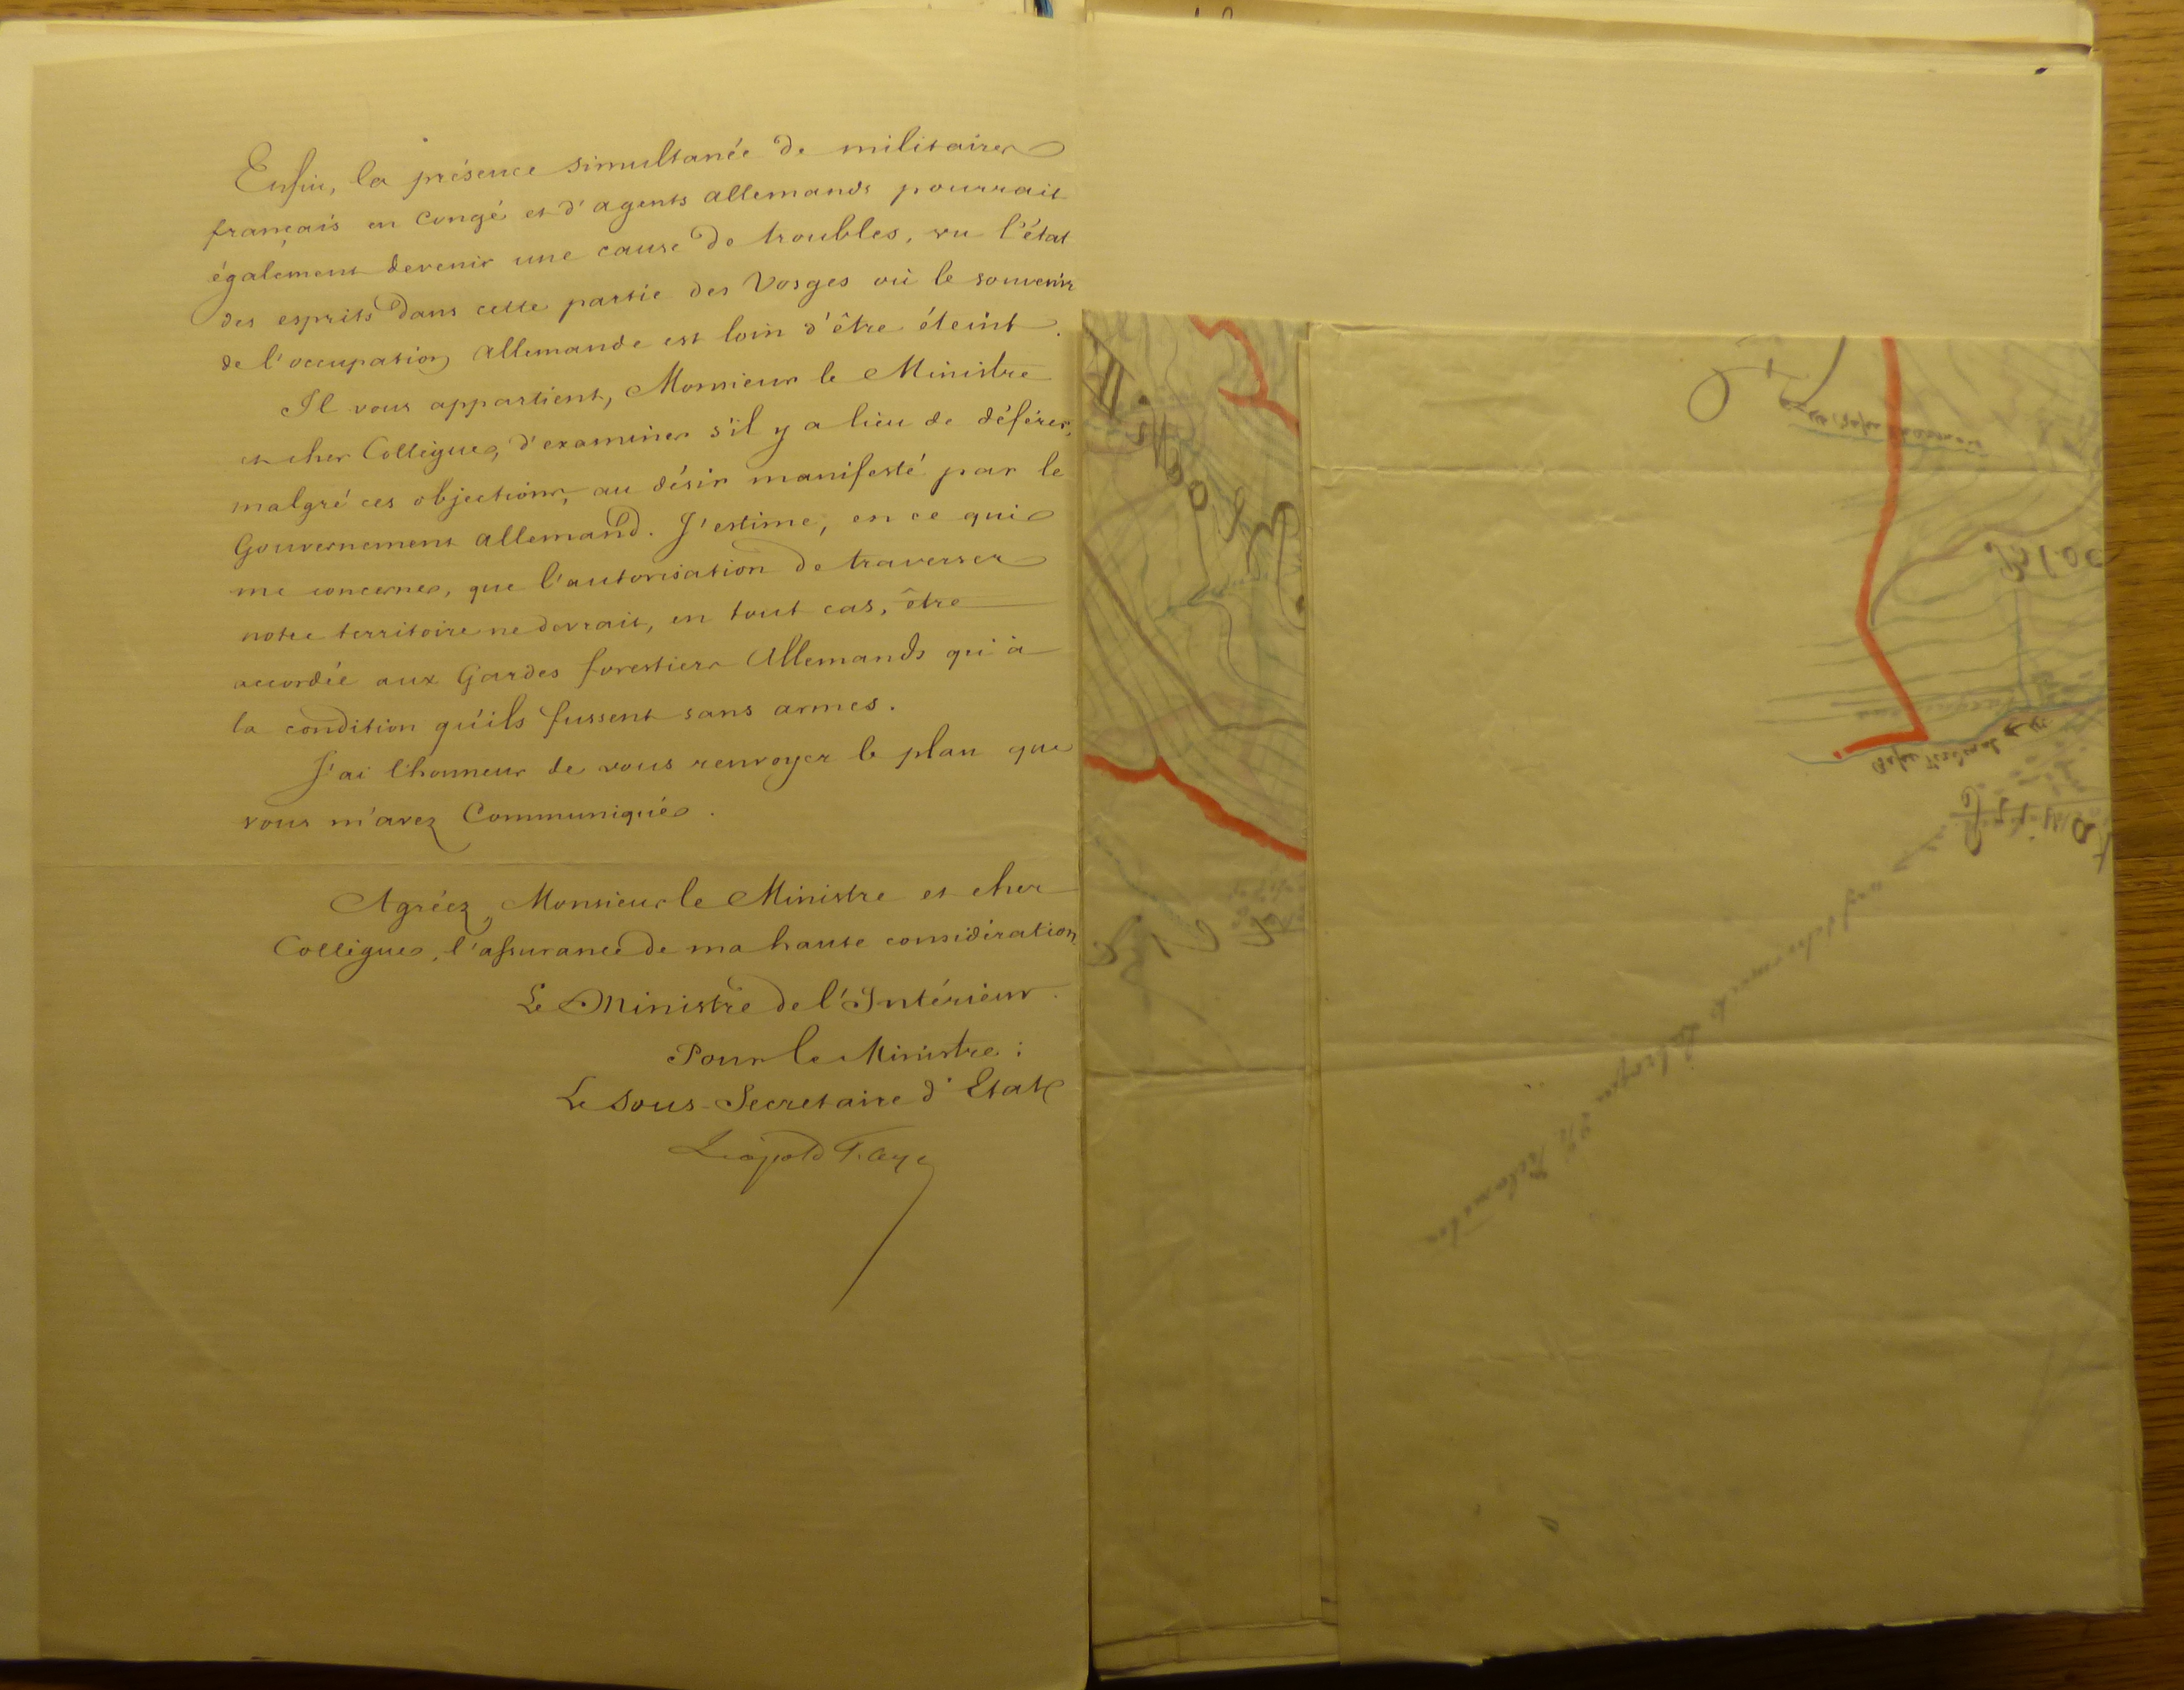 Enfin, la présence simultanée de militaires
français en congé et d'agents allemands pourrait
également devenir une cause de troubles, vu l'état
des esprits dans cette partie des Vosges où le souvenir
de l'occupation allemande est loin d'être éteint.
Il vous appartient, Monsieur le Ministre
et cher Collègue, d'examiner s'il y a lieu de déférer,
malgré ces objections, au désir manifesté par le
Gouvernement allemand. J'estime, en ce qui
me concerne, que l'autorisation de traverser
notre territoire ne devrait, en tout cas, être
accordée aux Gardes forestiers Allemands qu'à
la condition qu'ils fussent sans armes.
J'ai l'honneur de vous renvoyer le plan que
vous m'avez Communiqué.
Agréez, Monsieur le Ministre et cher
Collègue, l'assurance de ma haute considération
Le Ministre de l'Intérieur.
Pour le Ministre:
Le Sous-Secretaire d'Etat
Léopold Faye